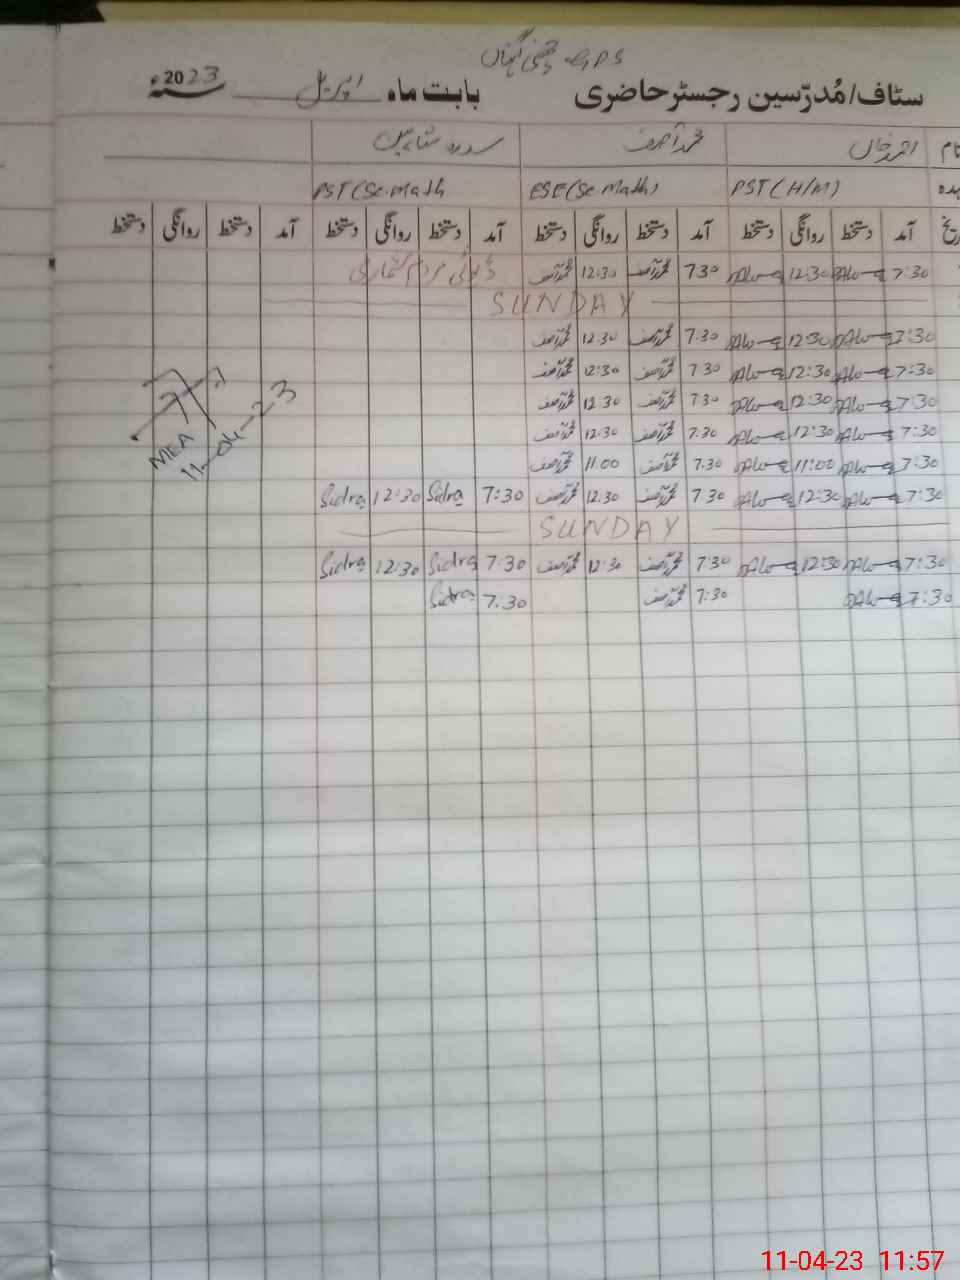 GPS
سٹاف/مُدرّسین رجسٹر حاضری بابت ماہ اپریل سنہ 2023ء
نام احمد خاں محمد آصف سدرہ شاہین
PST (H/M) ESE (Sc Math) PST (Sc. Math
آمد دستخط روانگی دستخط آمد دستخط روانگی دستخط آمد دستخط روانگی دستخط آمد دستخط روانگی دستخط
7:30 12:30 7:30 محمد آصف 12:30 محمد آصف ڈیوٹی مردم شماری
SUNDAY
7:30 12:30 7:30 محمد آصف 12:30 محمد آصف
7:30 12:30 7:30 محمد آصف 12:30 محمد آصف
7:30 12:30 7:30 محمد آصف 12:30 محمد آصف
7:30 12:30 7:30 محمد آصف 12:30 محمد آصف
7:30 11:00 7:30 محمد آصف 11:00 محمد آصف
7:30 12:30 7:30 محمد آصف 12:30 محمد آصف 7:30 Sidra 12:30 Sidra
SUNDAY
7:30 12:30 7:30 محمد آصف 12:30 محمد آصف 7:30 Sidra 12:30 Sidra
7:30 7:30 محمد آصف 7:30 Sidra
MEA
11-04-23
11-04-23 11:57